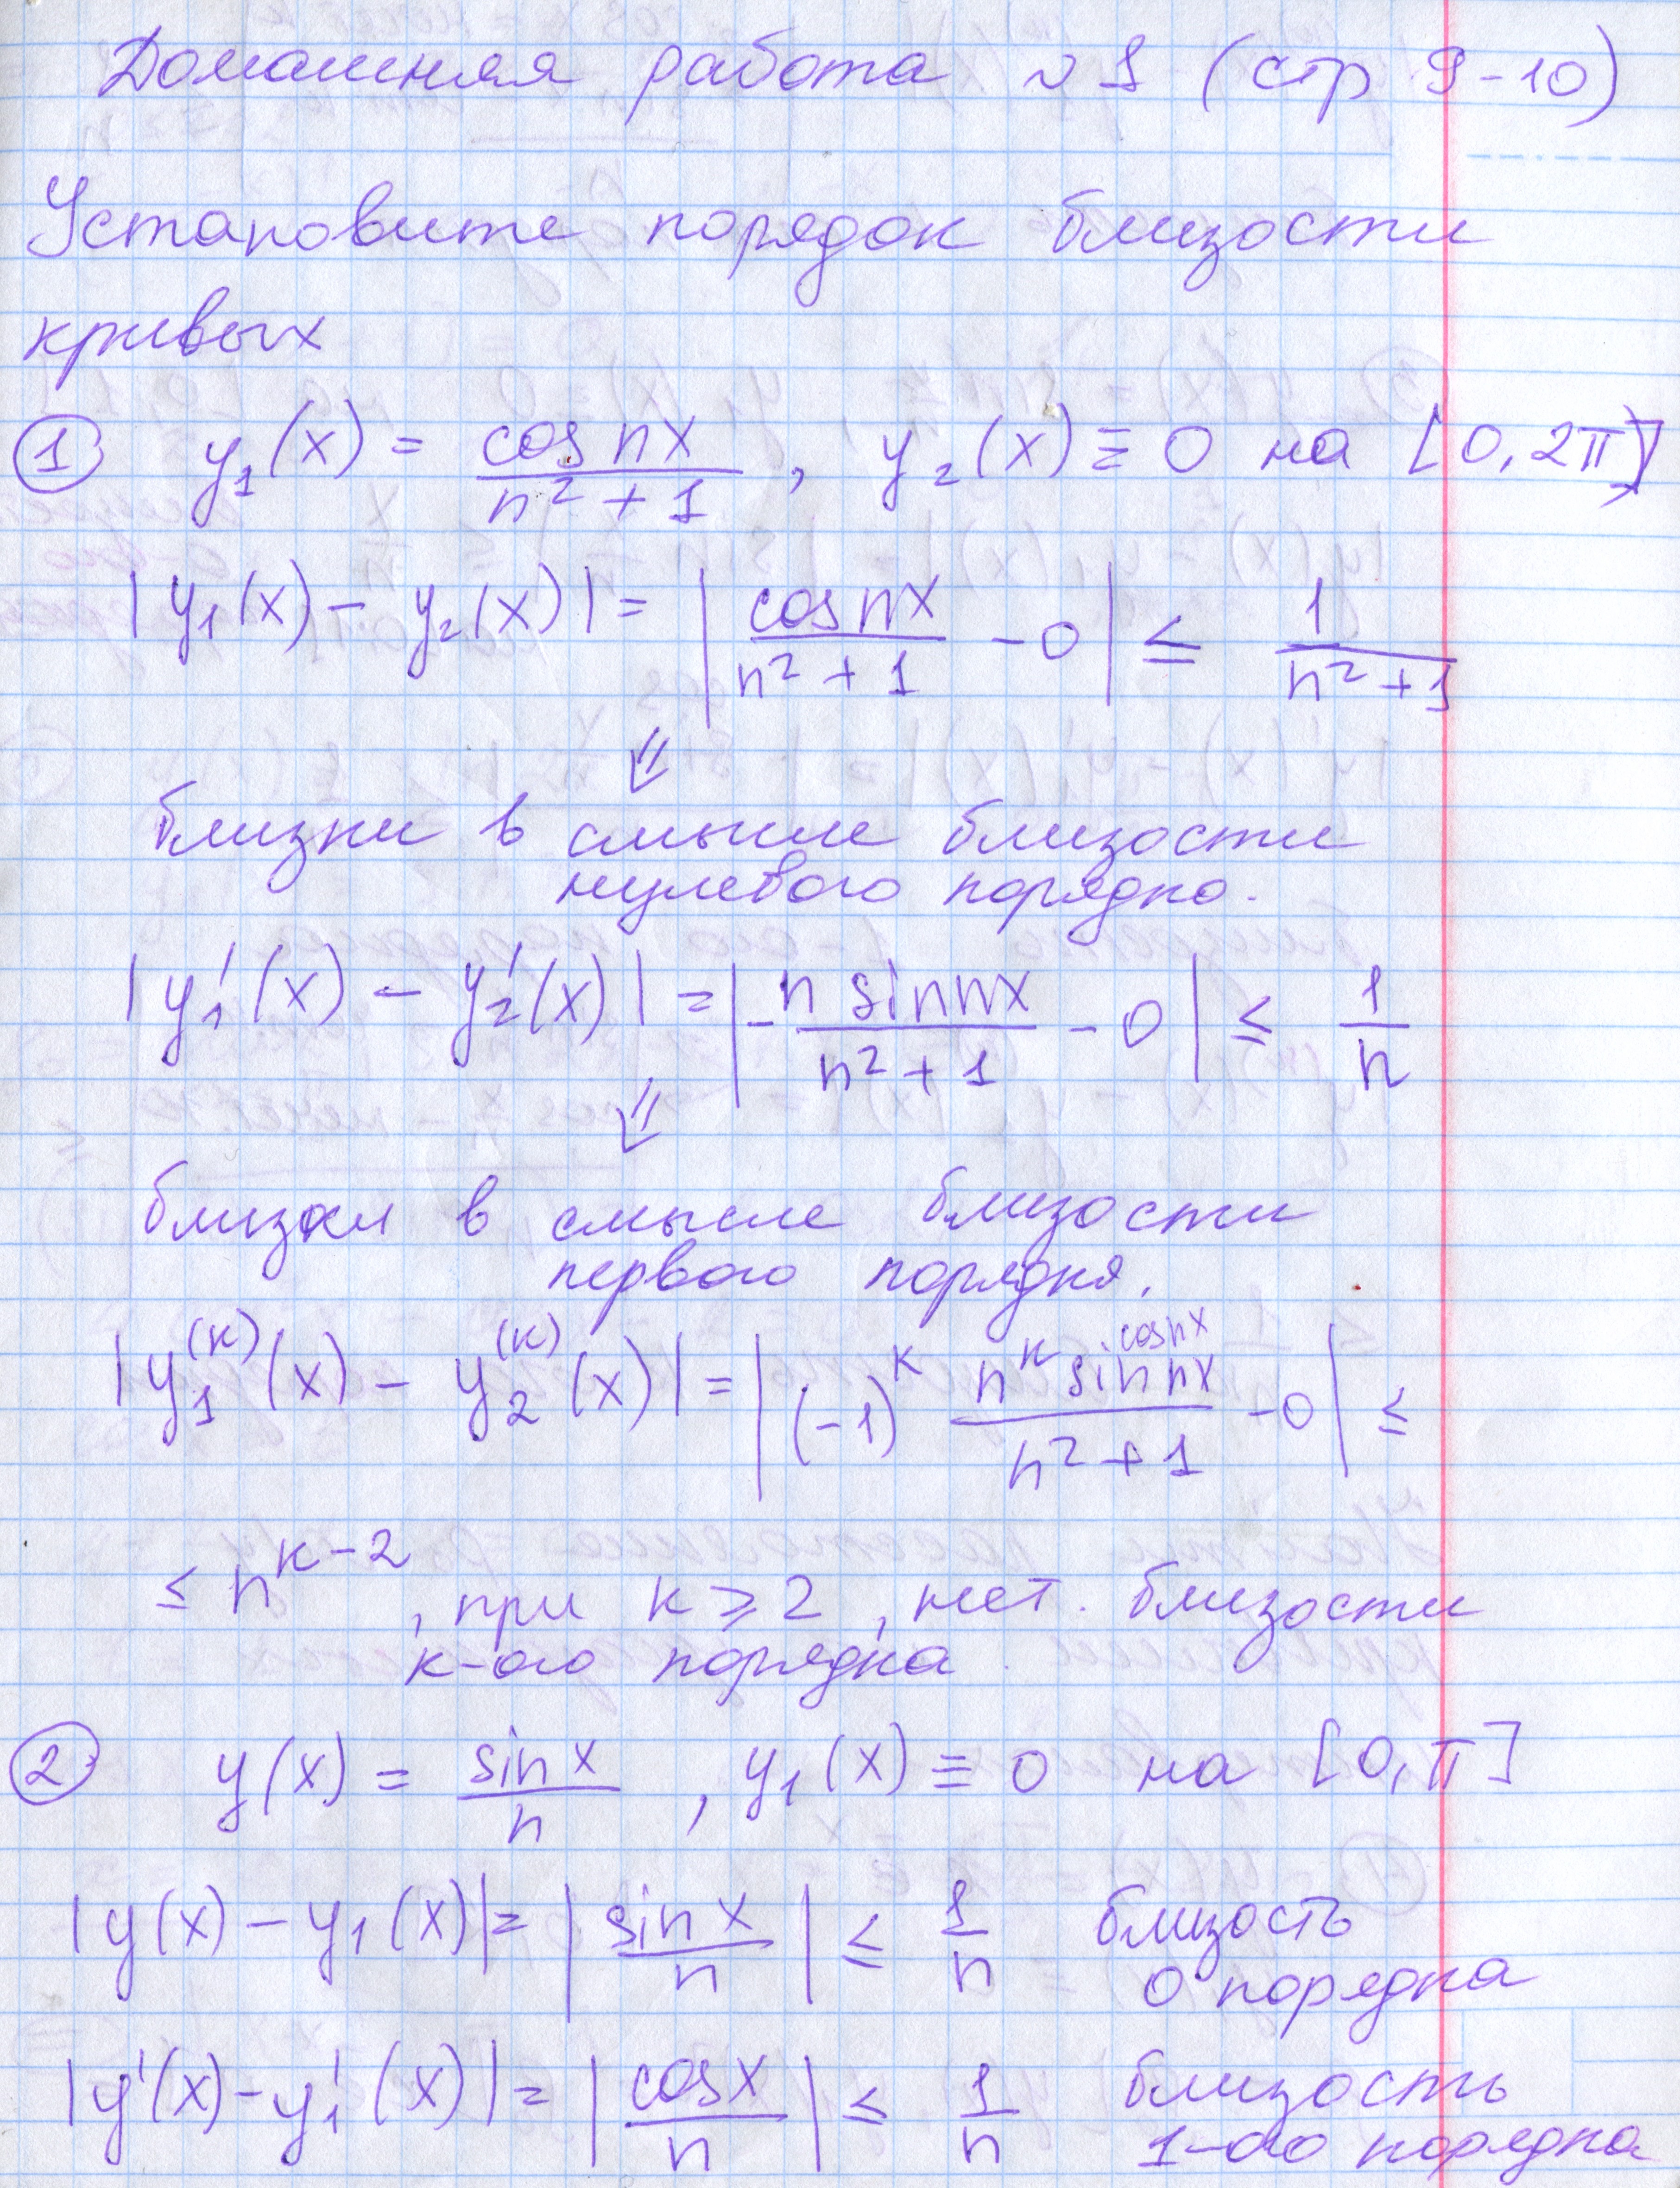 Домашняя работа №1 (стр 9-10)
Установите порядок близости
кривых
① y₁(x) = cos nx / (n² + 1) , y₂(x) ≡ 0 на [0, 2π]
|y₁(x) - y₂(x)| = | cos nx / (n² + 1) - 0 | ≤ 1 / (n² + 1)
⇓
близки в смысле близости
нулевого порядка.
|y₁'(x) - y₂'(x)| = | - n sin nx / (n² + 1) - 0 | ≤ 1 / n
⇓
близки в смысле близости
первого порядка.
|y₁⁽ᵏ⁾(x) - y₂⁽ᵏ⁾(x)| = | (-1)ᵏ nᵏ sin nx cos nx / (n² + 1) - 0 | ≤
≤ nᵏ⁻² , при к ≥ 2 , нет. близости
к-ого порядка.
② y(x) = sin x / n , y₁(x) ≡ 0 на [0, π]
|y(x) - y₁(x)| = | sin x / n | ≤ 1 / n близость
0 порядка
|y'(x) - y₁'(x)| = | cos x / n | ≤ 1 / n близость
1-ого порядка